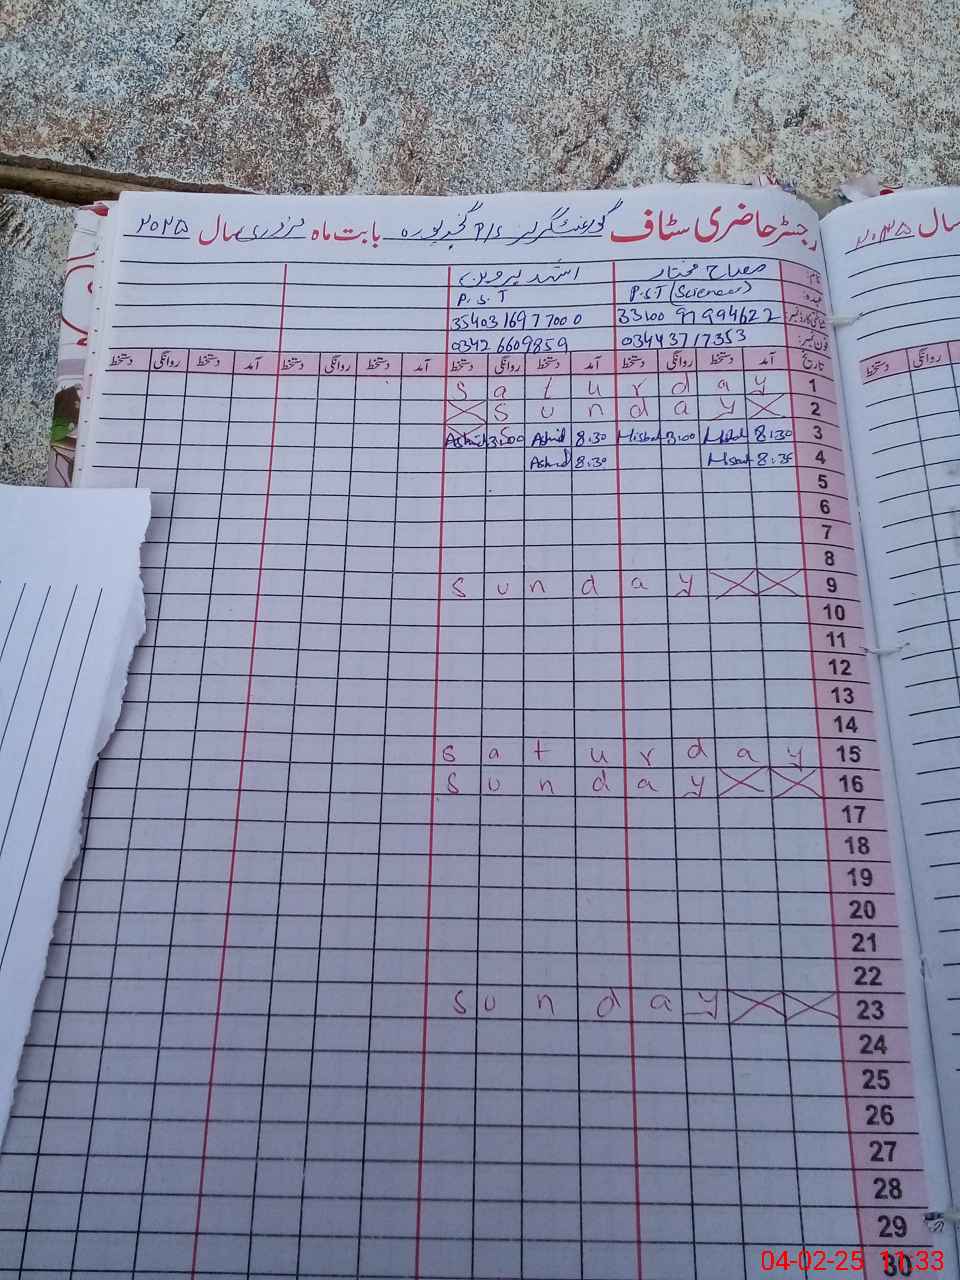 رجسٹر حاضری سٹاف گورنمنٹ گرلز P/S گنجہ پورہ بابت ماہ فروری سال ۲۰۲۵
سال ۲۰۲۵
نام: مصباح مختار
عہدہ: P.S.T (Science) P.S.T
شناختی کارڈ نمبر: 33100 97994622 3540316977000
فون نمبر: 03443717353 03426609859
تاریخ آمد دستخط روانگی دستخط آمد دستخط روانگی دستخط آمد دستخط روانگی دستخط آمد دستخط روانگی دستخط
روانگی دستخط
1 Saturday
2 Sunday
3 8:30 Misbah 3:00 Misbah 8:30 Ashid 3:00 Ashid
4 8:35 Misbah 8:30 Ashid
5
6
7
8
9 Sunday
10
11
12
13
14
15 Saturday
16 Sunday
17
18
19
20
21
22
23 Sunday
24
25
26
27
28
29
30
04-02-25 11:33